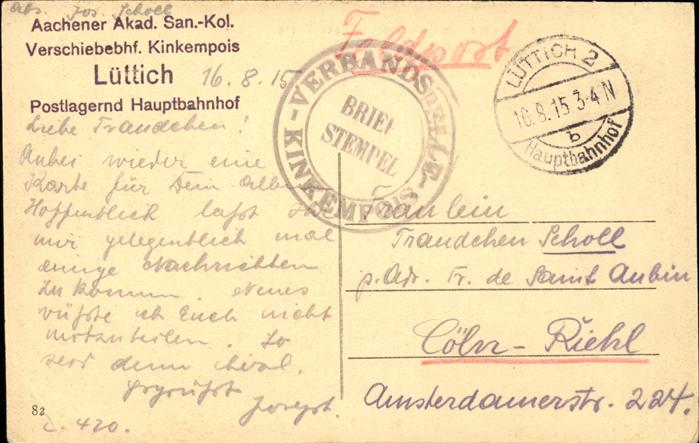 Abs. Jos. Scholl
Aachener Akad. San.-Kol.
Verschiebebhf. Kinkempois
Lüttich
Postlagernd Hauptbahnhof
16.8.15
Feldpost
VERBANDSTELLE
KINKEMPOIS
BRIEF
STEMPEL
LÜTTICH 2
16.8.15.3-4N
b
Hauptbahnhof
Liebe Traudchen!
Anbei wieder eine
Karte für Dein Album
Hoffentlich laßt Ihr
mir gelegentlich mal
einige Nachrichten
zukommen. Neues
wüßte ich Euch nicht
mitzuteilen. So
seid denn herzl.
gegrüßt
Joseph.
Fräulein
Traudchen Scholl
p. Adr. Fr. de Saint Aubin
Cöln-Riehl
Amsterdamerstr. 224.
82
420.